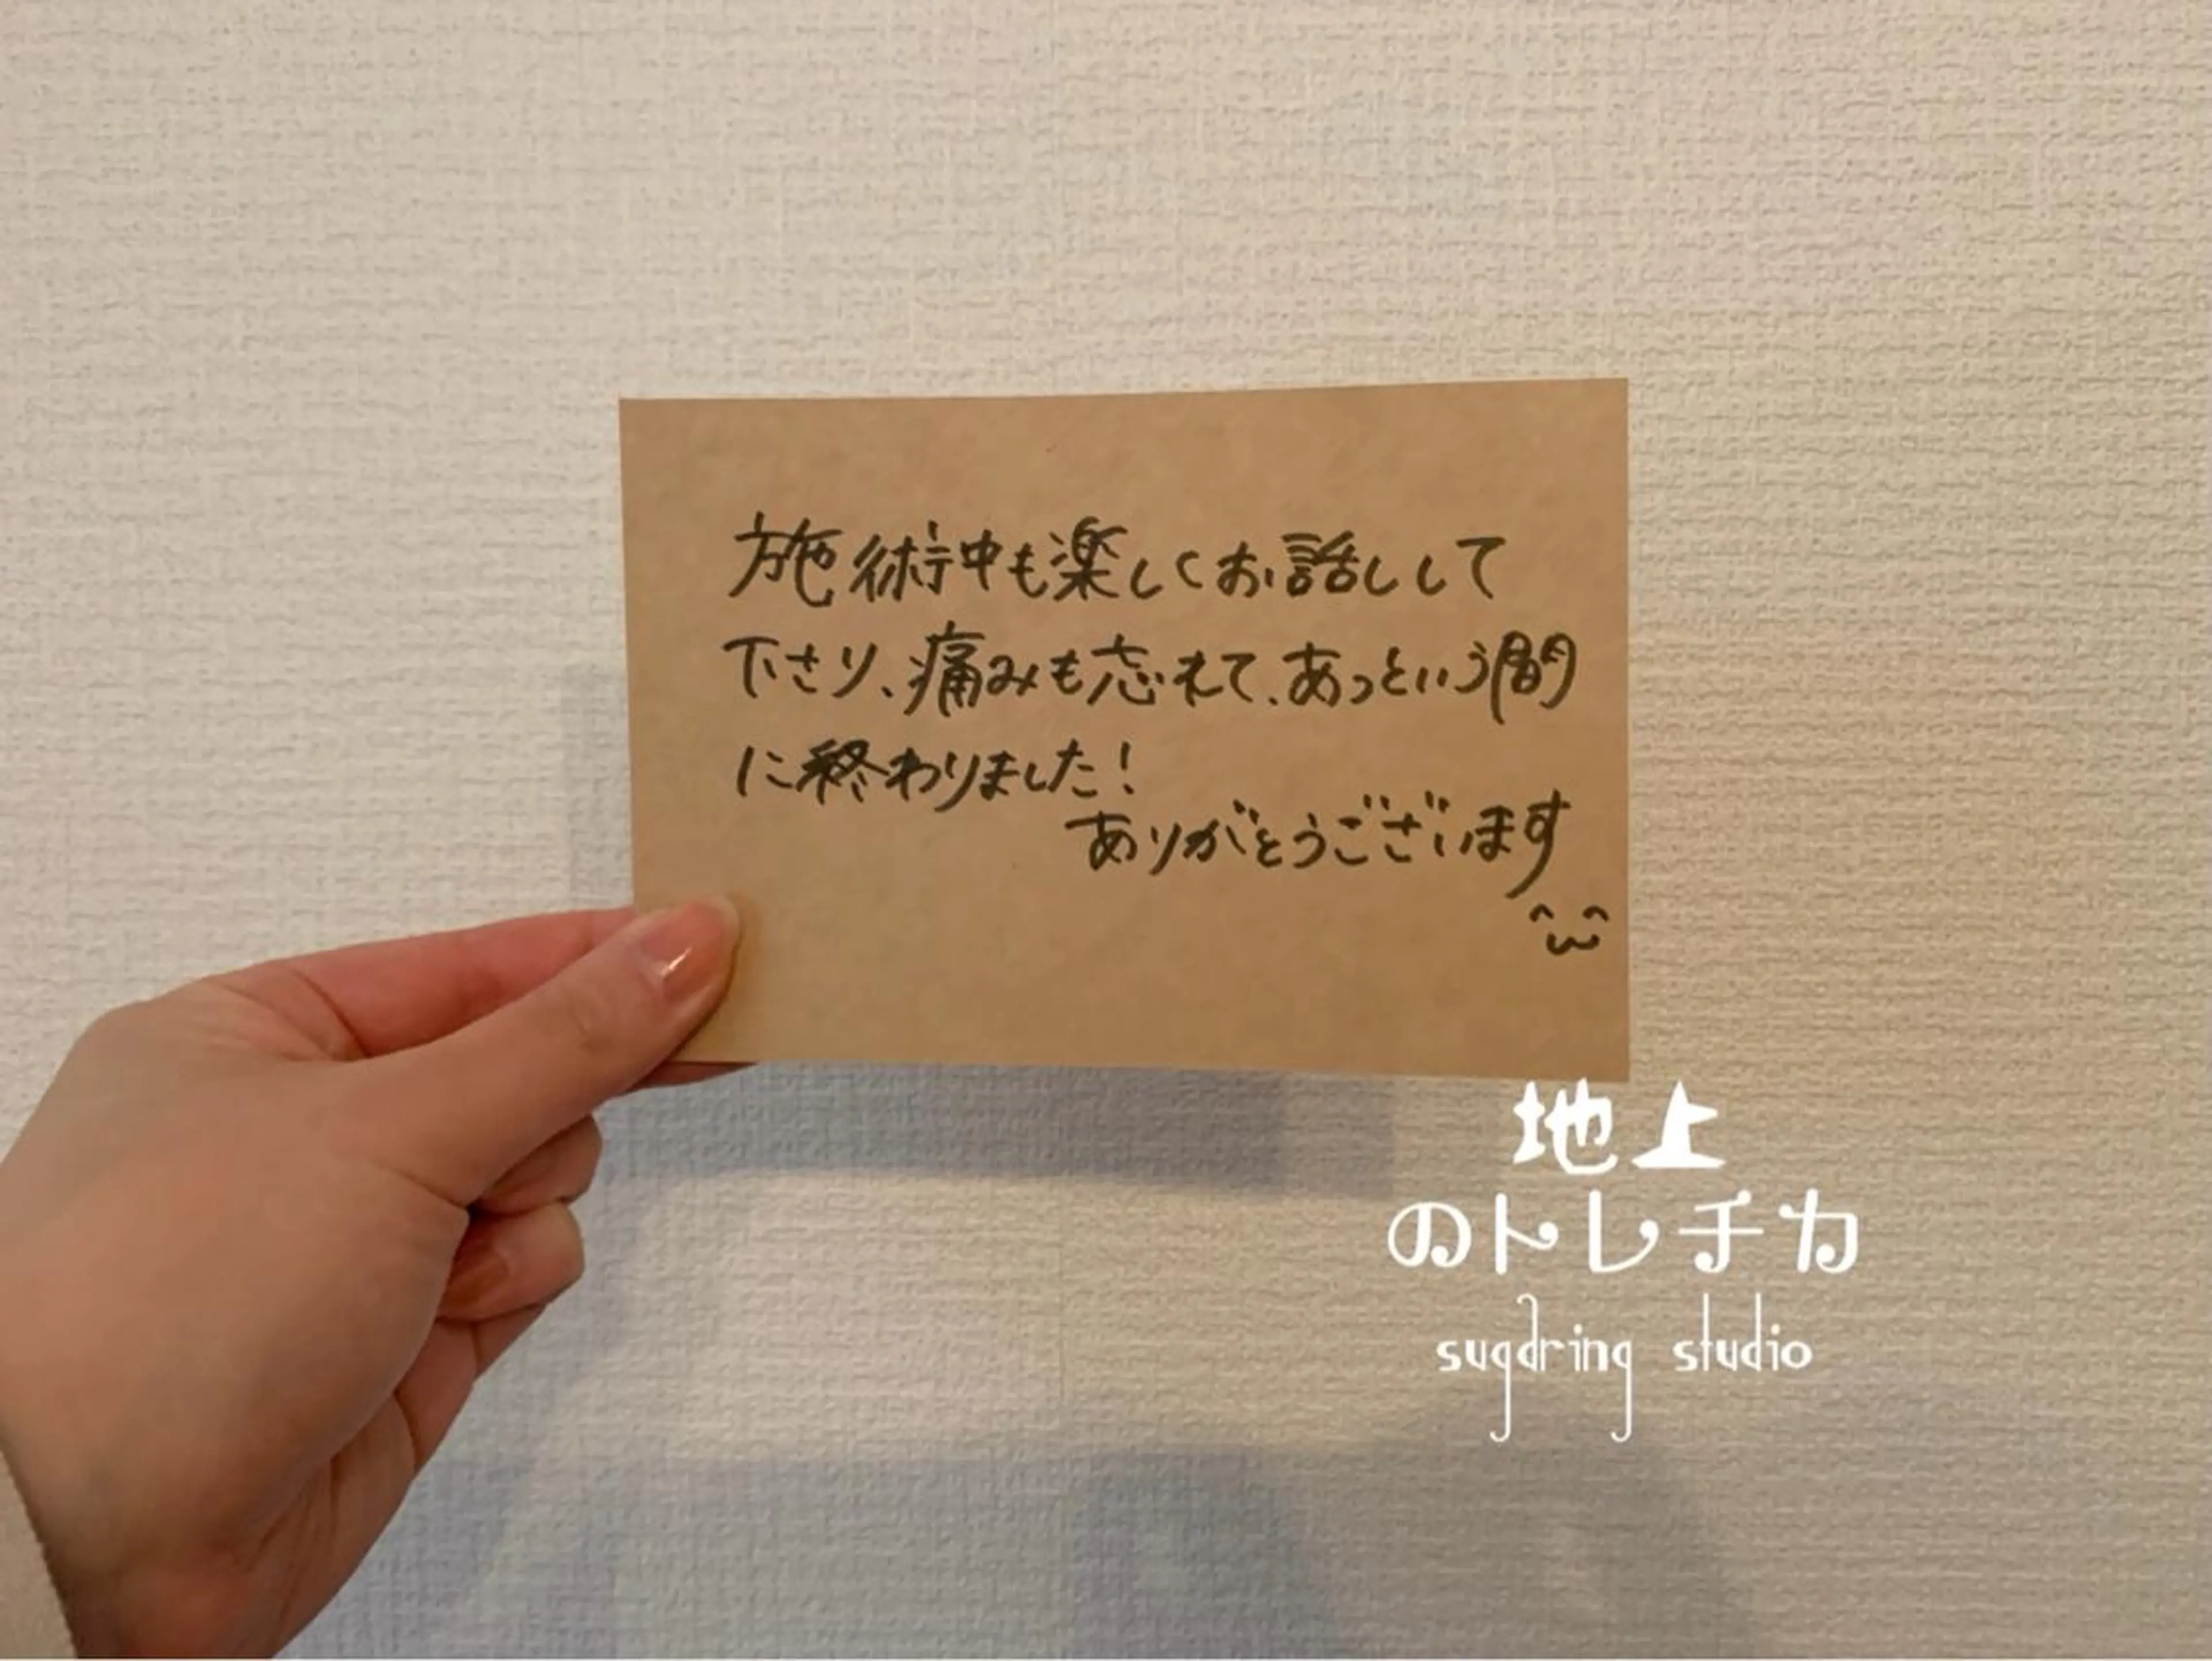 施術中も楽しくお話しして
下さり、痛みも忘れて、あっという間
に終わりました！
ありがとうございます
^ω^
地上
のトレチカ
sugdring studio